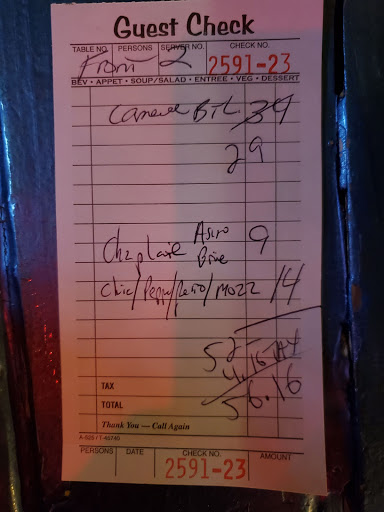 Guest Check
TABLE NO. PERSONS SERVER NO. CHECK NO.
Front 2 2591-23
BEV • APPET • SOUP/SALAD • ENTREE • VEG • DESSERT
BTL 34
29
9
Brie
/Pepp/ /Mozz 14
52
4.16 TAX
56.16
TAX
TOTAL
Thank You — Call Again
PERSONS DATE CHECK NO. AMOUNT
2591-23